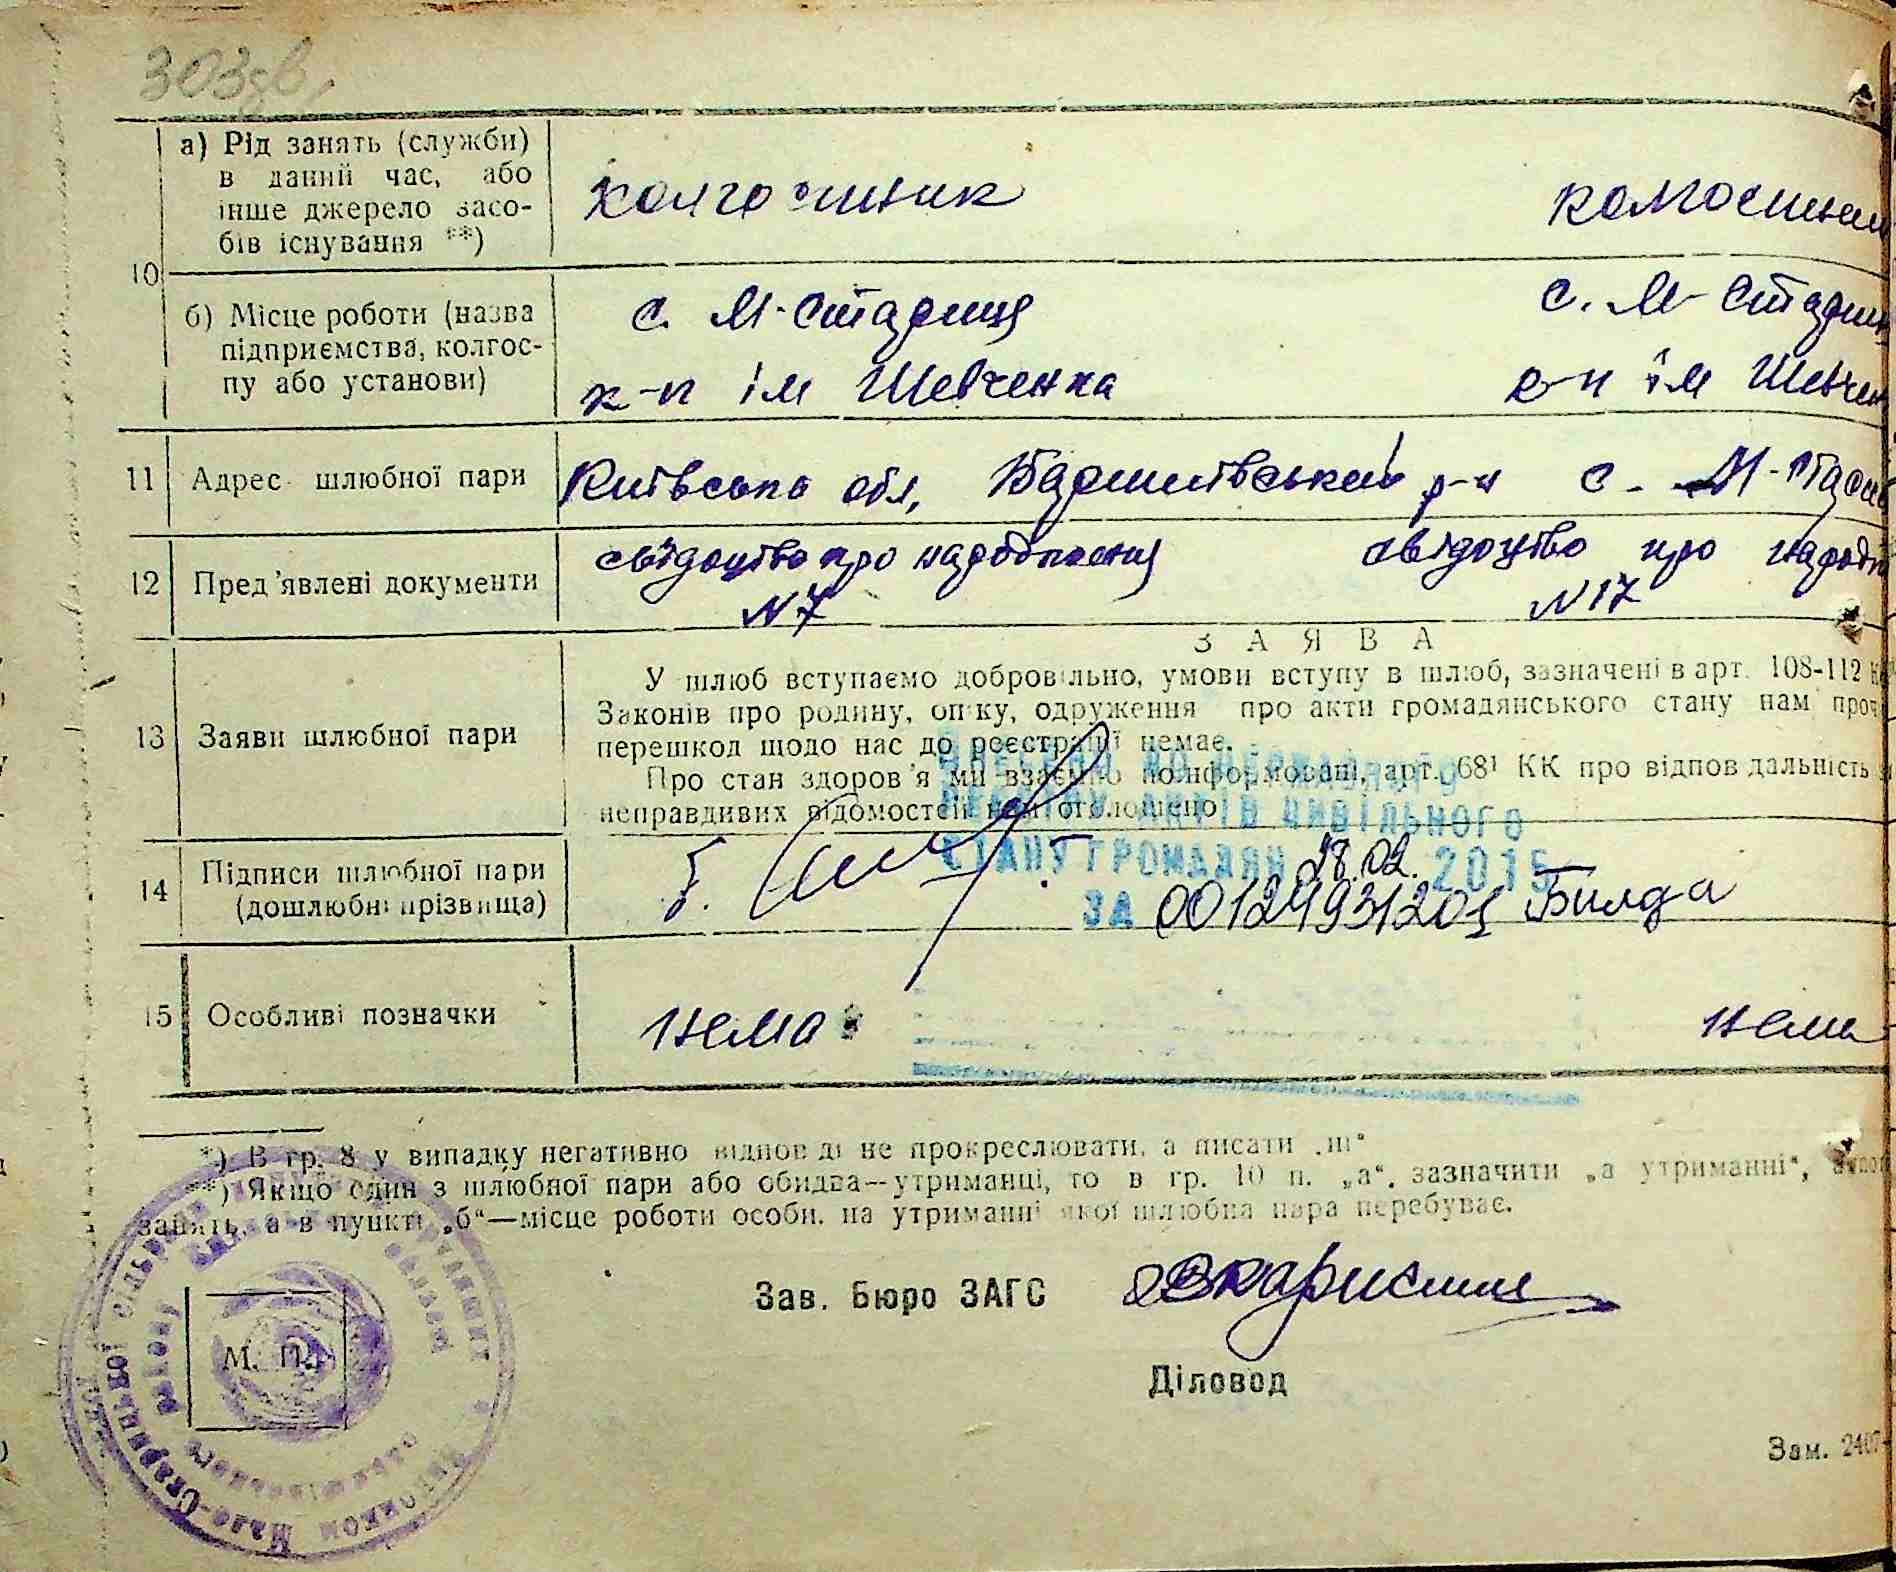 303зв.
а) Рід занять (служби)
в данній час, або
інше джерело засо-
бів існування **)
колгоспник
колгоспни
10
б) Місце роботи (назва
підприємства, колгос-
пу або установи)
с. М-Стариця
к-п ім Шевченка
с. М-Стариц
к-п ім Шевчен
11
Адрес шлюбної пари
Київська обл, Баришівський р-н с. М-Стари
12
Пред'явлені документи
свідоцтво про народження
№7
свідоцтво про народж
№17
ЗАЯВА
13
Заяви шлюбної пари
У шлюб вступаємо добровільно, умови вступу в шлюб, зазначені в арт. 108-112
Законів про родину, опіку, одруження про акти громадянського стану нам проч
перешкод щодо нас до реєстрації немає.
Про стан здоров'я ми взаємно поінформовані, арт. 68¹ КК про відповідальність
неправдивих відомостей нам оголошено
ВНЕСЕНО ДО ДЕРЖАВНОГО
РЕЄСТРУ АКТІВ ЦИВІЛЬНОГО
СТАНУ ГРОМАДЯН 28.02. 2015
ЗА 00124931201
14
Підписи шлюбної пари
(дошлюбні прізвища)
Билда
15
Особливі позначки
нема
нема
*) В гр. 8 у випадку негативно відповіді не прокреслювати, а писати „ні“
**) Якщо один з шлюбної пари або обидва—утриманці, то в гр. 10 п. „а“. зазначити „а утриманні“,
занять, а в пункті „б“—місце роботи особи, на утриманні якої шлюбна пара перебуває.
Зав. Бюро ЗАГС
М. П.
Діловод
Зам. 2407